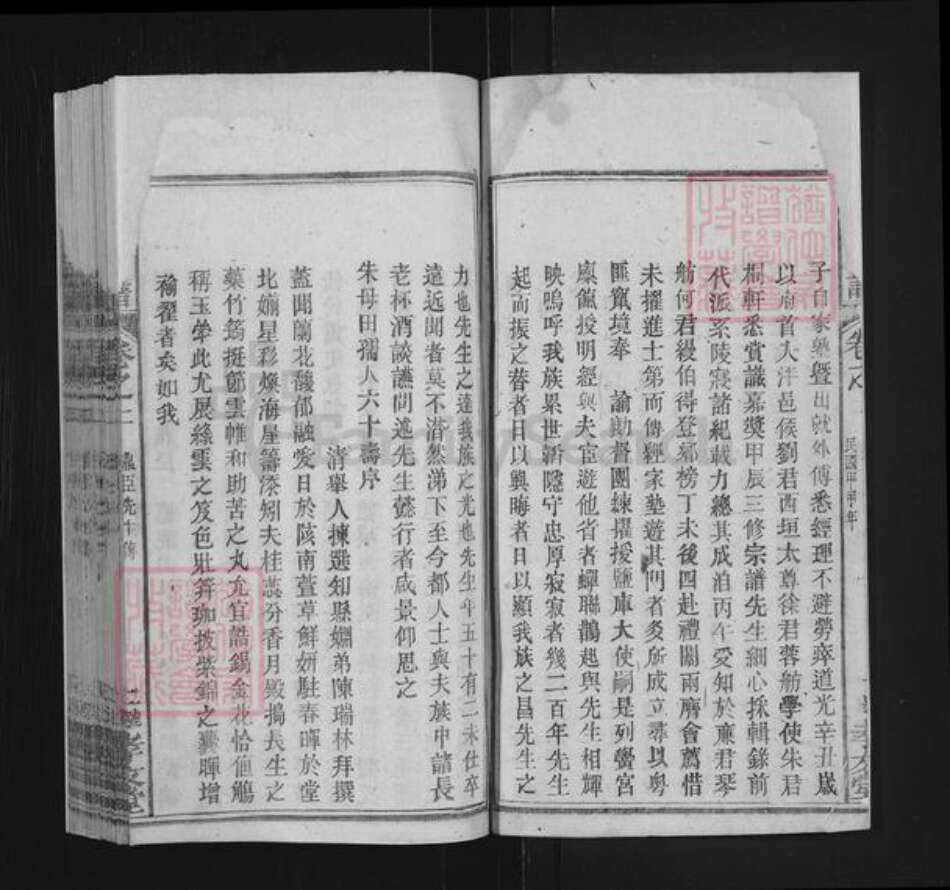 子自家藥暨出就外傅悉經理不避勞瘁道光辛丑歲
以府首入泮邑侯劉君酉垣太尊徐君蓉舫學使朱君
桐軒悉賞識嘉獎甲辰三修宗譜先生細心採輯錄前
代派系陵寢諸紀載力總其成洎丙午受知於亷君琴
舫何君緩伯得登鄉榜丁未後四赴禮闈兩膺會薦惜
未擢進士第而傳經家塾遊其門者爻所成立尋以粵
匪竄境奉 諭勷督團練擢援鹽庫大使嗣是列黌宮
廩餼授明經與夫宦遊他省者蟬聯鵲起與先生相輝
映嗚呼我族累世耕隱守忠厚寂寂者幾二百年先生
起而振之替者日以興晦者日以顯我族之昌先生之
力也先生之達我族之光也先生年五十有二未仕卒
遠近聞者莫不潸然涕下至今都人士與夫族中諸長
老杯酒談讌間述先生懿行者咸景仰思之
朱母田孺人六十壽序
清舉人揀選知縣姻弟陳瑞林拜撰
蓋聞蘭花馥郁融愛日於陔南萱草鮮妍駐春暉於堂
北婺星彩煥海屋籌添矧夫桂蕊分香月殿搗長生之
藥竹筠挺節雲帷和助苦之丸尤宜誥錫金花恰值觴
稱玉斝此尤展絲雲之笈色壯笄珈披紫錦之囊暉增
褕翟者矣如我
民國甲申年